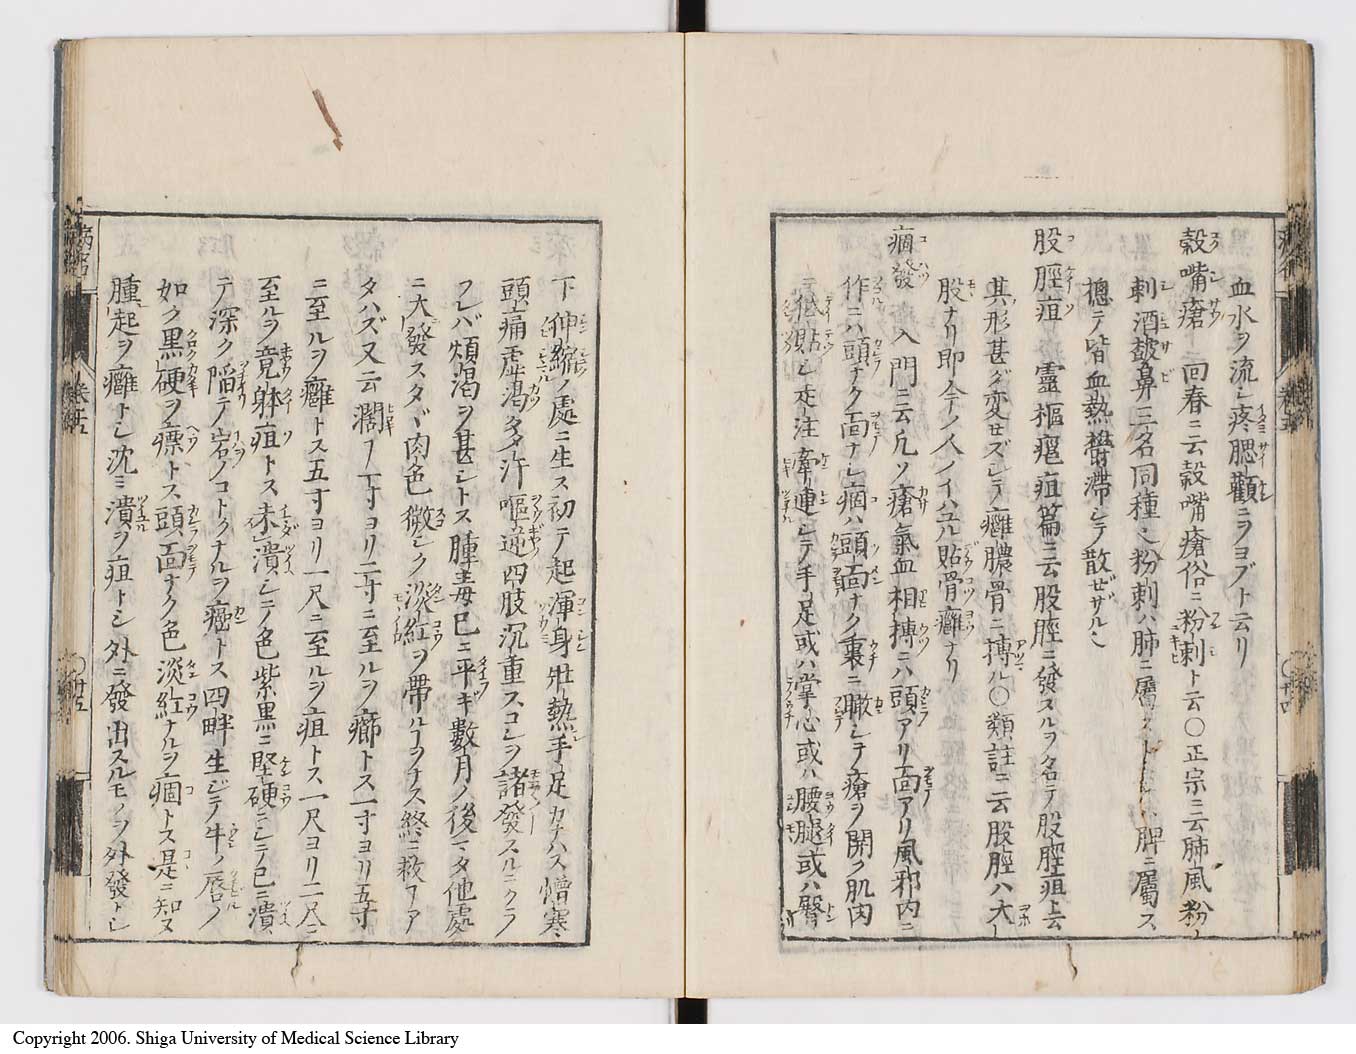 血水ヲ流シ疼腮顴ニヲヨブト云リ
穀嘴瘡 回春ニ云穀嘴瘡俗ニ粉刺ト云〇正宗ニ云肺風粉
刺酒皶鼻三名同種ニ粉刺ハ肺ニ屬
脾ニ屬ス
摠テ皆血熱欝滯シテ散ゼザル也
股脛疽 靈樞癰疽篇ニ云股脛ニ發スルヲ名テ股脛疽ト云
其形甚ダ変セズシテ癰膿骨ニ搏ル〇類註ニ云股脛ハ大
股ナリ即今ノ人ノイハユル貼骨癰ナリ
痼發 入門ニ云凡ソ瘡氣血相搏ニハ頭アリ面アリ風邪内ニ
作ニハ頭ナク面ナシ痼ハ頭面ナク裏ニ瞰シテ瘡ヲ開ク肌肉
ニ低貼シ走注牽連シテ手足或ハ掌心或ハ腰腿或ハ臀
下伸縮ノ處ニ生ス初テ起渾身壯熱手足カナハス憎寒
頭痛虚渴多汗嘔逆四肢沉重スコレヲ諸發スルニクラ
フレバ煩渴ヲ甚シトス腫毒已ニ平ギ數月ノ後マタ他處
ニ大發スタヾ肉色微シク淡紅ヲ帶ルヿヲナス終ニ救フア
タハズ又云濶一寸ヨリ二寸ニ至ルヲ癤トス一寸ヨリ五寸
ニ至ルヲ癰トス五寸ヨリ一尺ニ至ルヲ疽トス一尺ヨリ二尺ニ
至ルヲ竟躰疽トス赤潰シテ色紫黒ニ堅硬ニシテ已ニ潰
テ深ク陷テ岩ノコトクナルヲ癌トス四畔生ジテ牛ノ唇ノ
如ク黒硬ヲ瘭トス頭面ナク色淡紅ナルヲ痼トス是ニ知ヌ
腫起ヲ癰トシ沈ミ潰ヲ疽トシ外ニ發出スルモノヲ外發トシ
病名
卷五
〇廿五
Copyright 2006. Shiga University of Medical Science Library